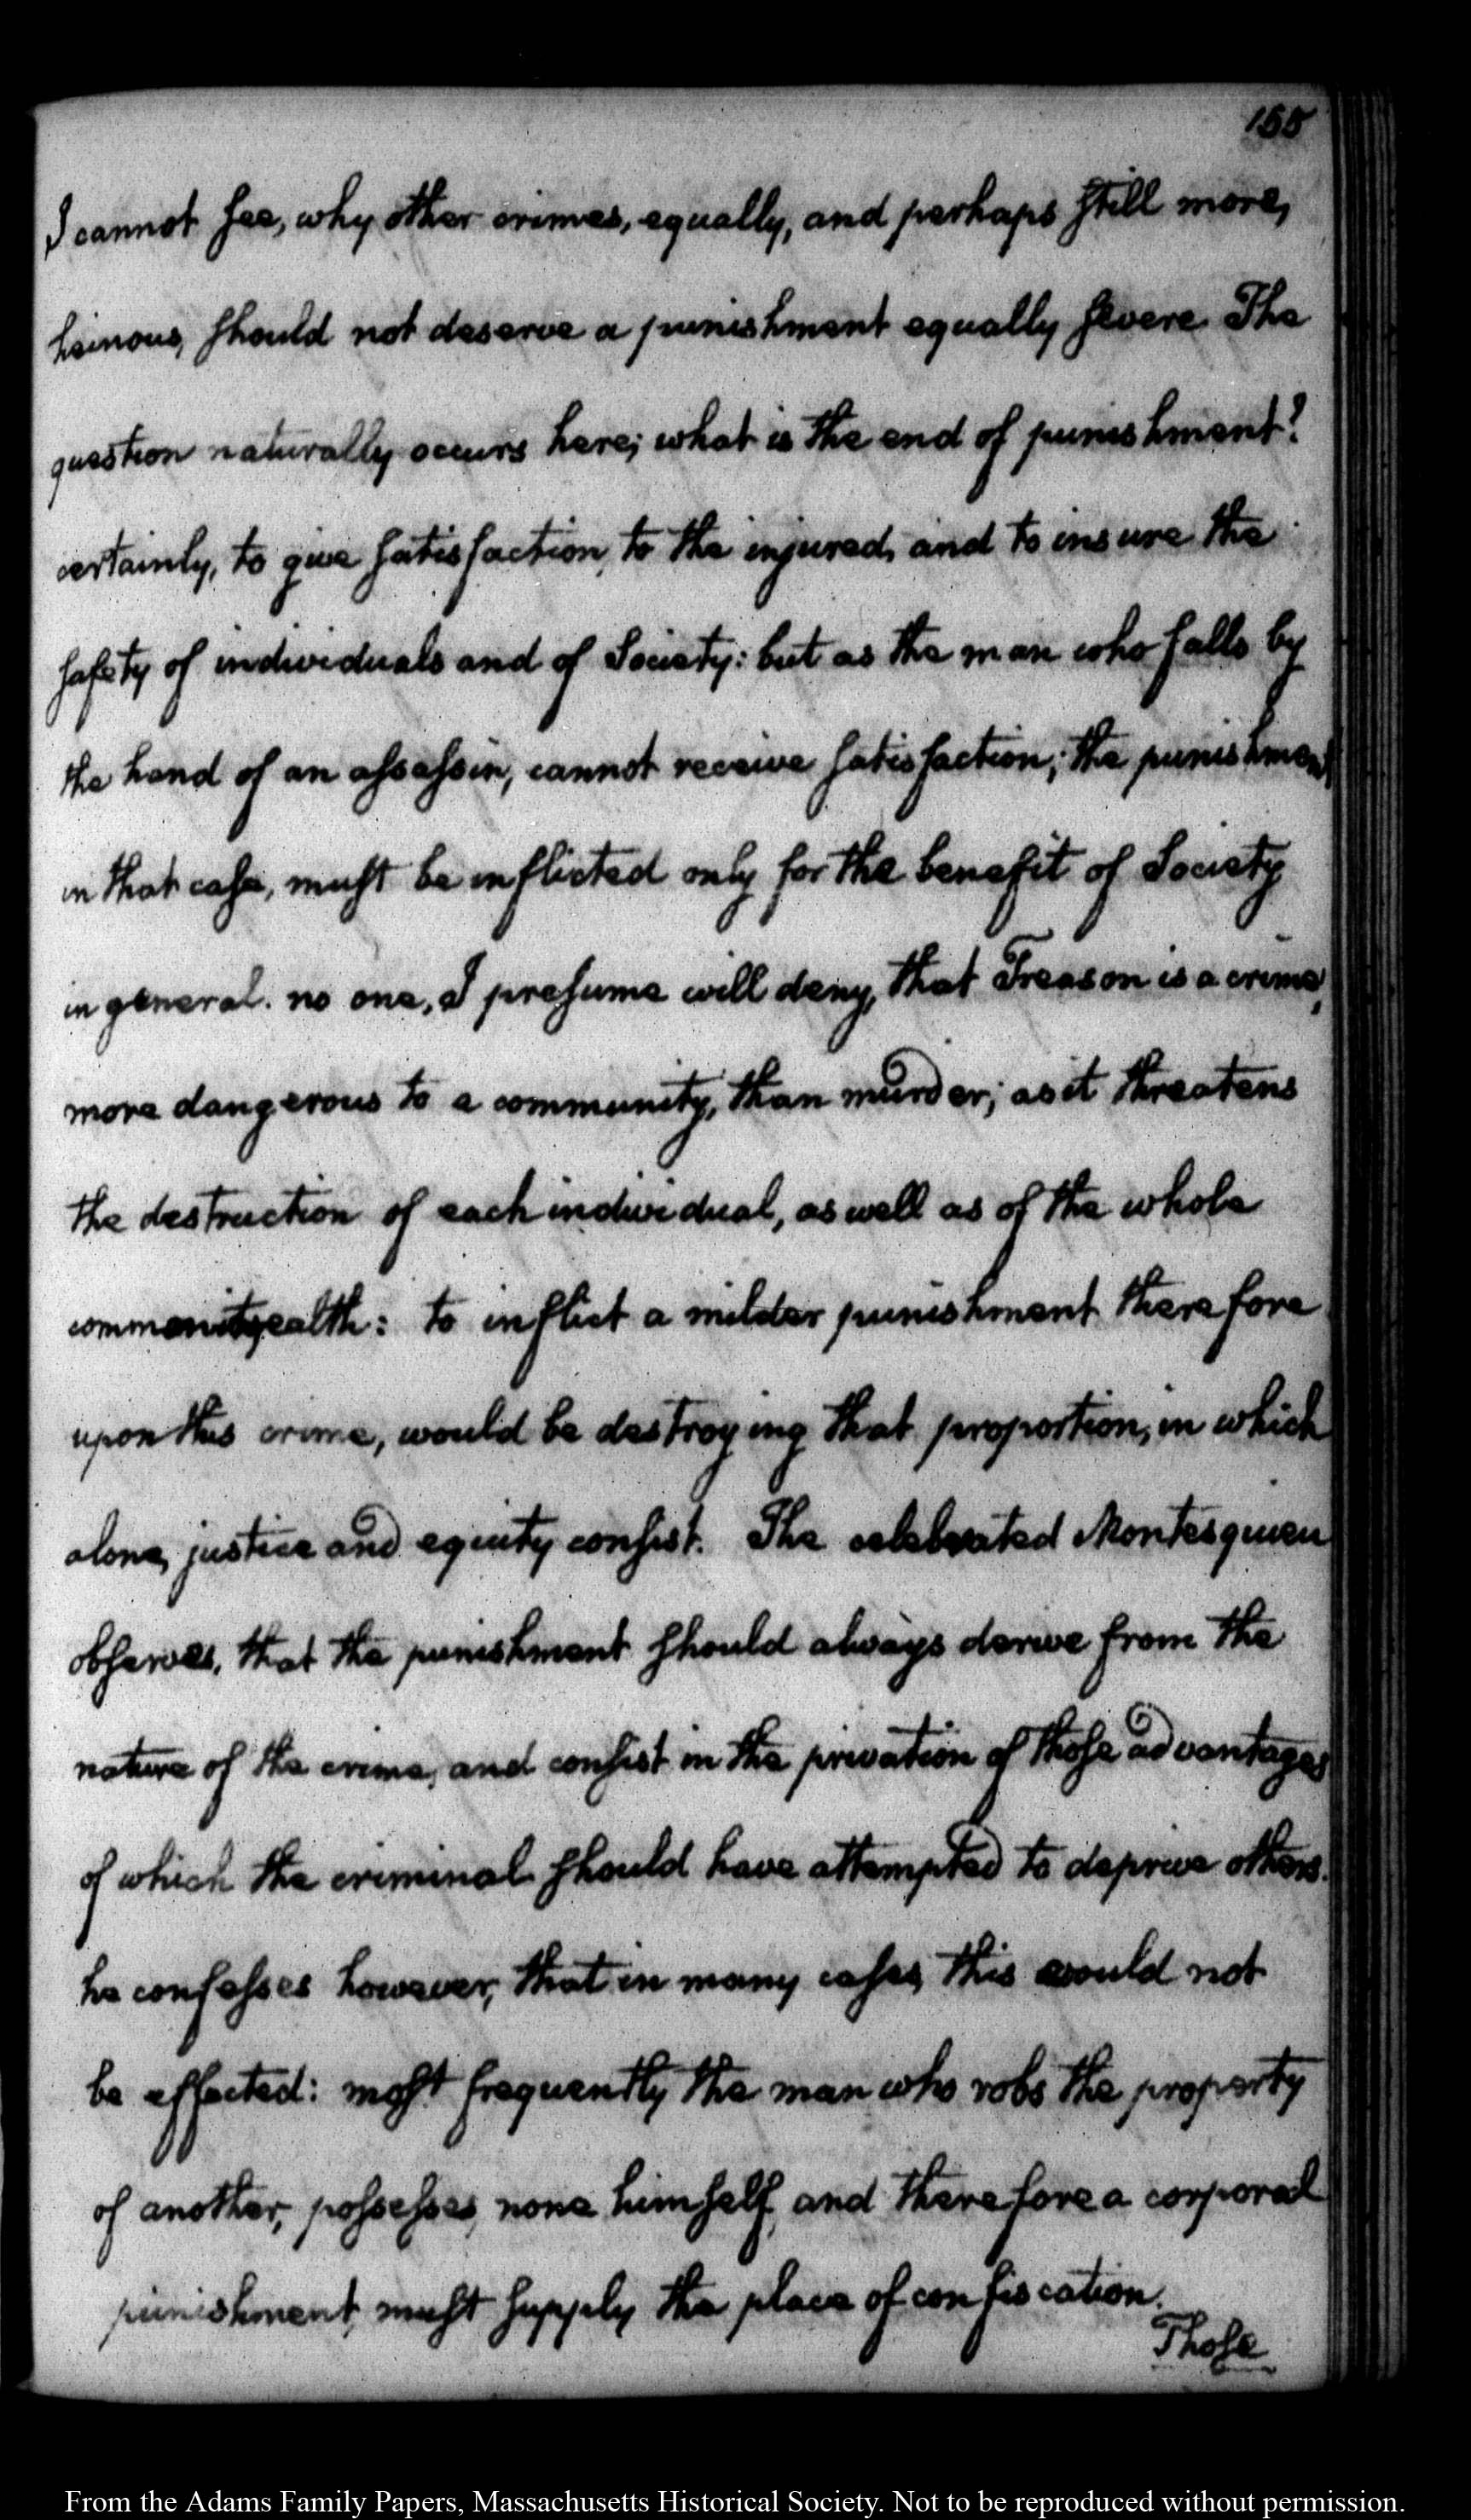 155
I cannot see, why other crimes, equally, and perhaps still more,
heinous, should not deserve a punishment equally severe. The
question naturally occurs here; what is the end of punishment?
certainly, to give satisfaction, to the injured, and to insure the
safety of individuals and of Society: but as the man who falls by
the hand of an assassin, cannot receive satisfaction; the punishment
in that case, must be inflicted only for the benefit of Society
in general. no one, I presume will deny, that Treason is a crime,
more dangerous to a community, than murder; as it threatens
the destruction of each individual, as well as of the whole
commonwealth: to inflict a milder punishment therefore
upon this crime, would be destroying that proportion, in which
alone, justice and equity consist. The celebrated Montesquieu
observes, that the punishment should always derive from the
nature of the crime, and consist in the privation of those advantages
of which the criminal should have attempted to deprive others.
he confesses however, that in many cases, this could not
be effected: most frequently the man who robs the property
of another, possesses, none himself, and therefore a corporal
punishment, must supply the place of confiscation.
Those
From the Adams Family Papers, Massachusetts Historical Society. Not to be reproduced without permission.